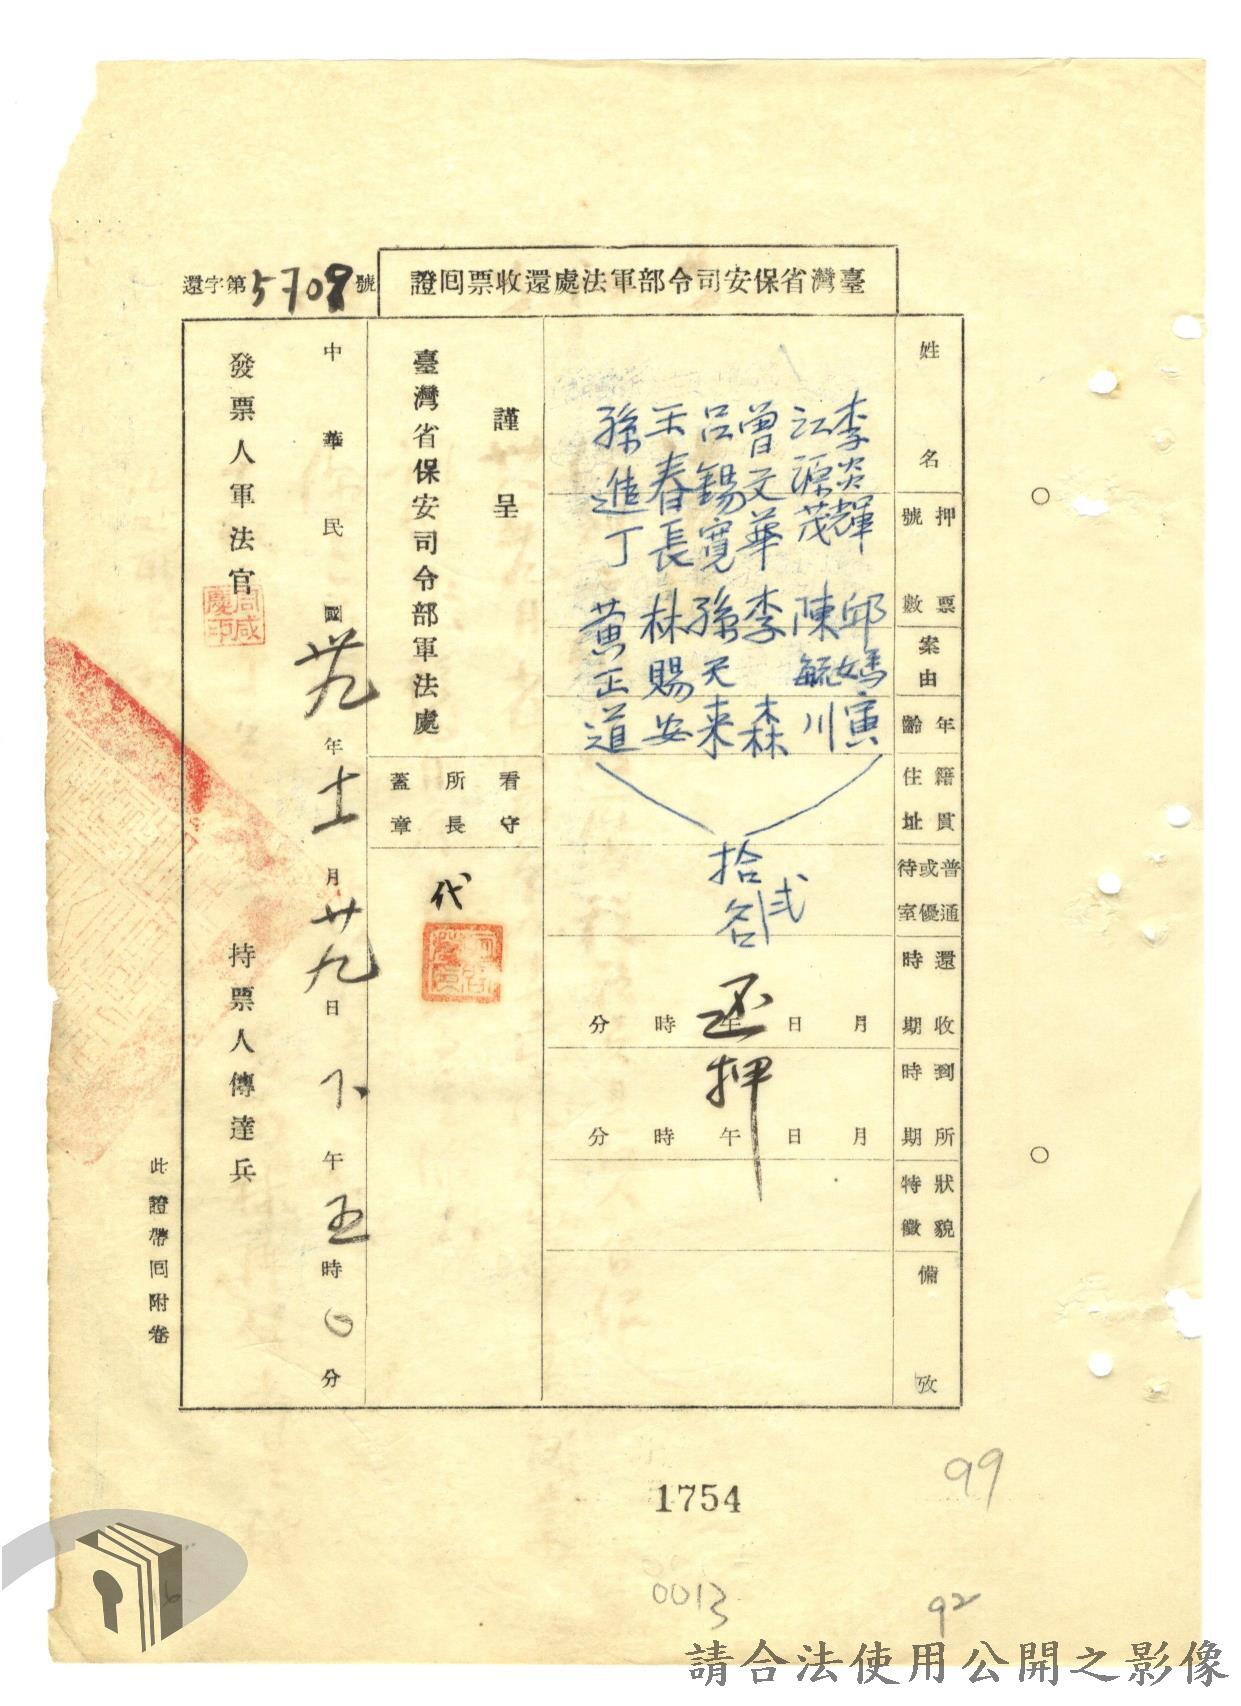 臺灣省保安司令部軍法處還收票回證
還字第5709號
姓名
押票號數
案由
年齡
籍貫住址
普通或優待室
還收時期
到所時期
狀貌特徵
備攷
李炎輝 邱媽寅
江源茂 陳毓川
曾文華 李森
呂錫寬 孫天來
王春長 林賜安
孫進丁 黃正道
拾弍名
还押
月日午時分
月日午時分
謹呈
臺灣省保安司令部軍法處
看守所長蓋章
代
中華民國卅九年十一月廿九日下午五時0分
發票人軍法官
周咸慶印
持票人傳達兵
此證帶回附卷
1754
99
0013
92
請合法使用公開之影像